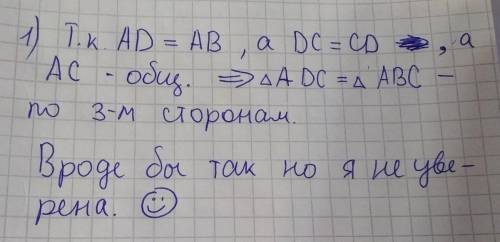 1) Т.к. AD = AB, а DC = CD, а
AC - общ. ⇒ △ADC = △ABC –
по 3-м сторонам.
Вроде бы так но я не уве-
рена. ☺